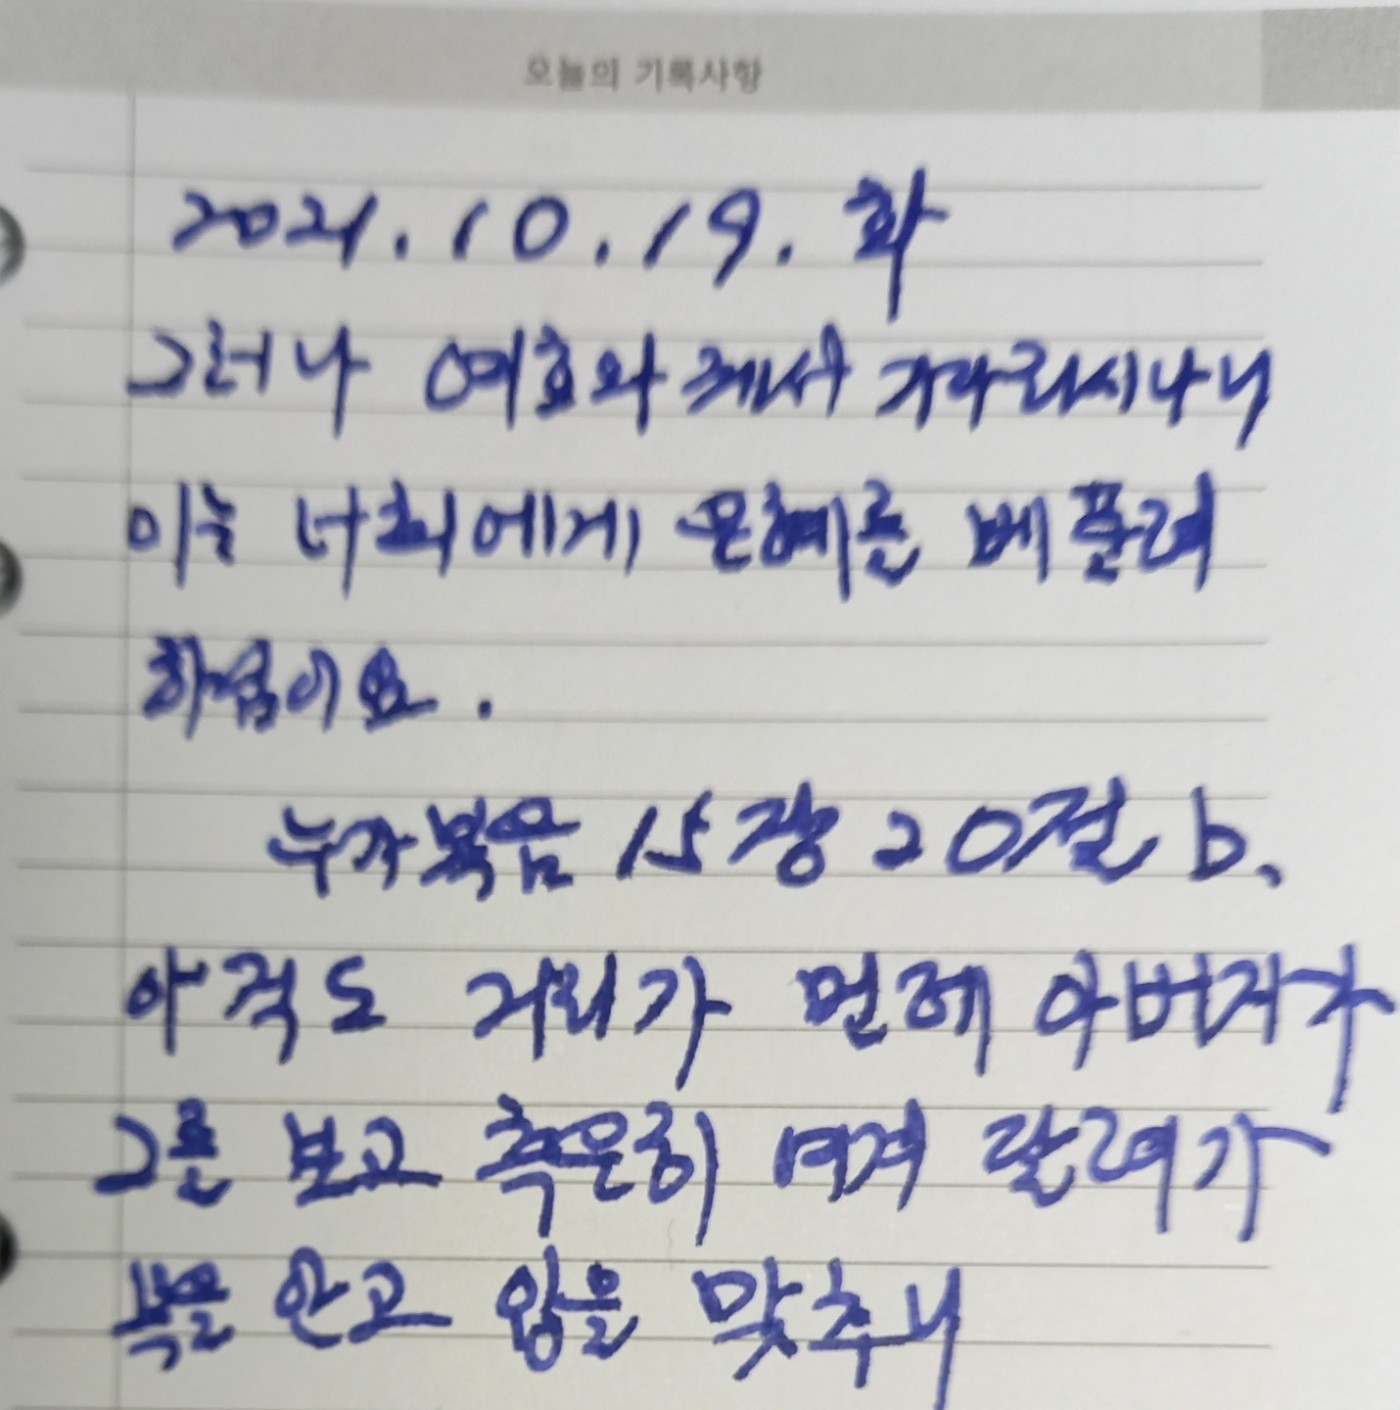 오늘의 기록사항
2021. 10. 19. 화
그러나 여호와께서 기다리시나니
이는 너희에게 은혜를 베풀려
하심이요.
누가복음 15장 20절 b.
아직도 거리가 먼데 아버지가
그를 보고 측은히 여겨 달려가
목을 안고 입을 맞추니